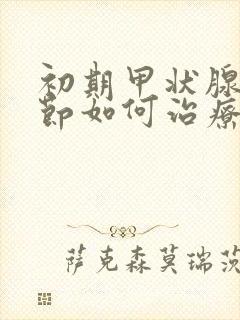 初期甲状腺
節如何治療
萨克森莫瑞茨